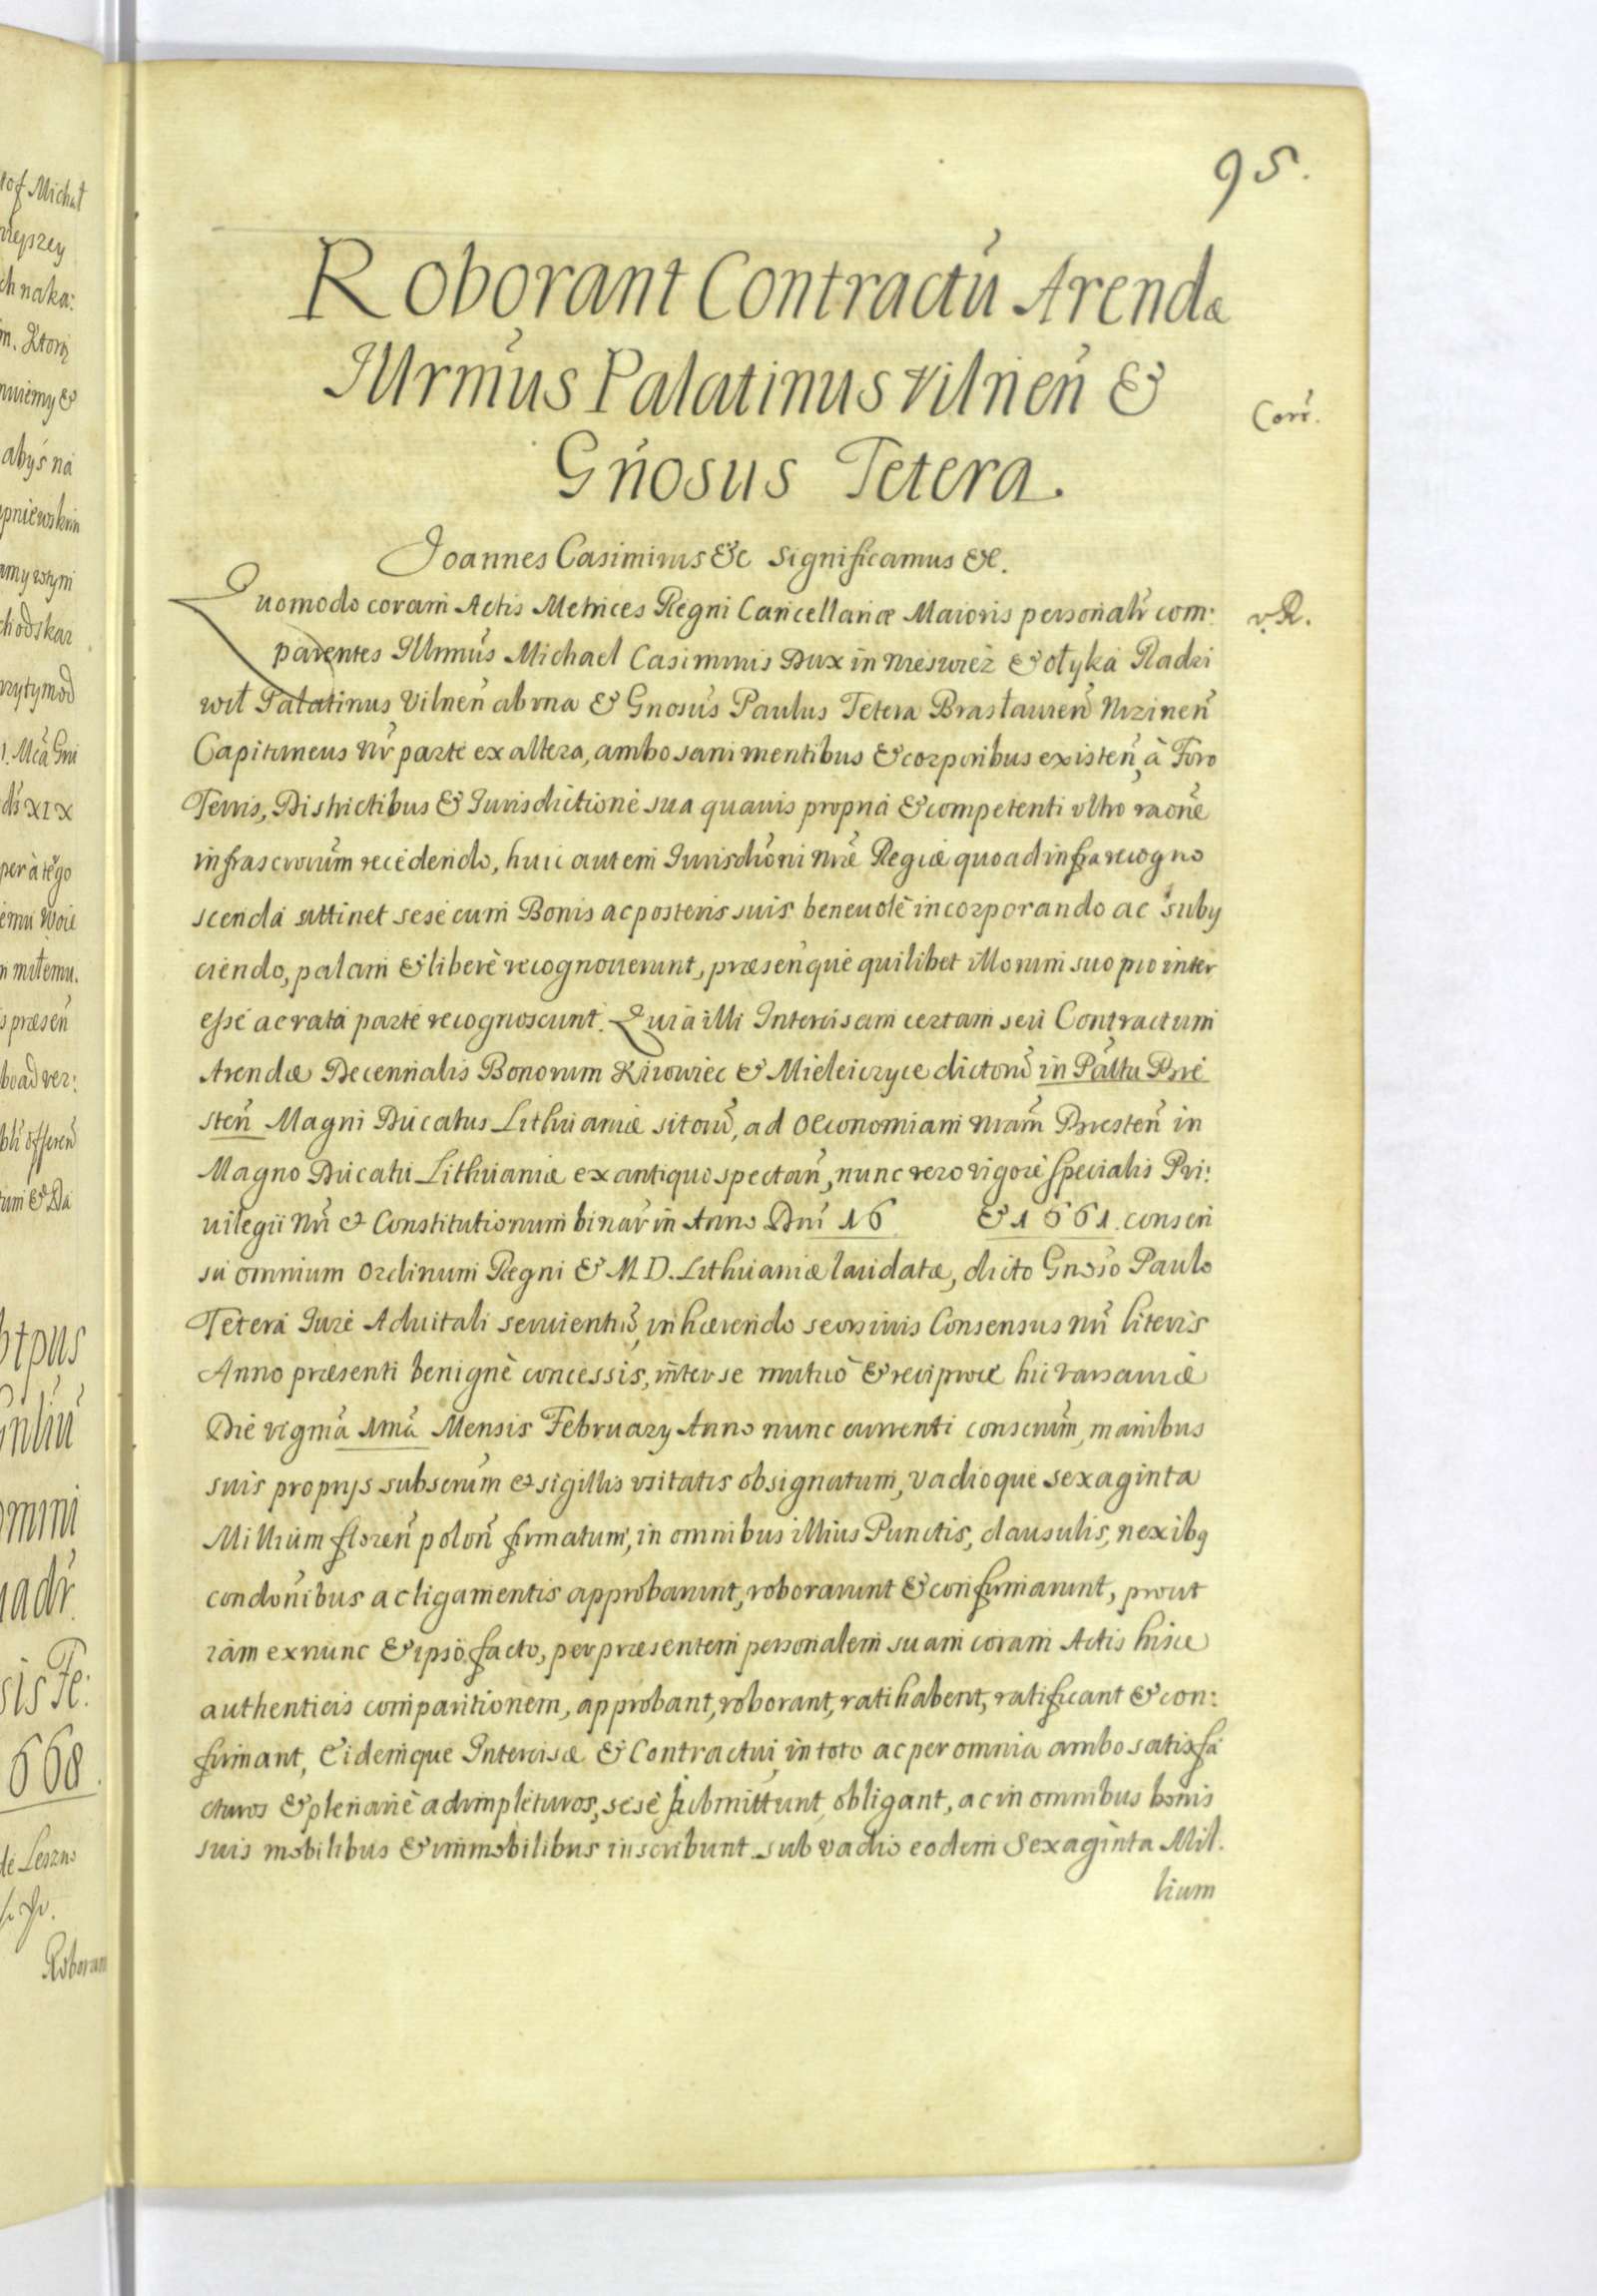 95.
Roborant Contractu᷃ Arendæ
Illrmu᷃s Palatinus Vilnen᷃ &
Gn᷃osus Tetera.
Corr᷃.
Joannes Casimirus &c Significamus &c.
Quomodo coram Actis Metrices Regni Cancellariæ Maioris personalr᷃ com:
v. R.
parentes Illrmu᷃s Michael Casimirus Dux in Nieswiez & Ołyka Radzi
wił Palatinus Vilnen᷃ ab vna & Gnosu᷃s Paulus Tetera Brasłauien᷃ Nizinen᷃
Capitaneus Nr᷃ parte ex altera, ambo sani mentibus & corporibus existen᷃, à Foro
Terris, Districtibus & Jurisdictione sua quauis propria & competenti vltro raone᷃
infrascrorum᷃ recedendo, huic autem Jurisdioni᷃ Nræ᷃ Regiæ quoad infra recogno
scenda attinet sese cum Bonis ac posteris suis beneuolè incorporando ac suby
ciendo, palam & liberè recognouerunt, præsen᷃que quilibet illorum suo pro inter
esse ac rata parte recognoscunt. Quia illi Intercisam certam seu Contractum
Arendæ Decennalis Bonorum Kiiowiec & Mieleiczyce dictoru᷃ in Pal᷃tu Brie
sten᷃ Magni Ducatus Lithuaniæ sitoru᷃, ad Oeconomiam Nram᷃ Bresten᷃ in
Magno Ducatu Lithuaniæ ex antiquo spectan᷃, nunc vero vigore specialis Pri:
uilegii Nri᷃ & Constitutionum binar᷃ in Anno Dni᷃ 16 & 1661. consen
su omnium Ordinum Regni & M. D. Lithuaniæ laudatæ, dicto Gnoso᷃ Paulo
Tetera Jure Aduitali seruientiu᷃, inhærendo seorsiuis Consensus Nri᷃ literis
Anno præsenti benignè concessis, inter se mutuò & reciprocè hic Varsauiæ
Die vigma᷃ 1ma᷃ Mensis February Anno nunc currenti conscrum᷃, manibus
suis proprijs subscrum᷃ & sigillis vsitatis obsignatum, vadioque sexaginta
Millium floren᷃ polon᷃ firmatum, in omnibus illius Punctis, clausulis, nexibq
condonibus᷃ ac ligamentis approbarunt, roborarunt & confirmarunt, prout
iam ex nunc & ipso facto, per præsentem personalem suam coram Actis hisce
authenticis comparitionem, approbant, roborant, ratihabent, ratificant & con:
firmant, Eidemque Intercisæ & Contractui, in toto ac per omnia ambo satisfa
cturos & plenariè adimpleturos, sese submittunt, obligant, ac in omnibus bonis
suis mobilibus & immobilibus inscribunt sub vadio eodem Sexaginta Mil.
lium